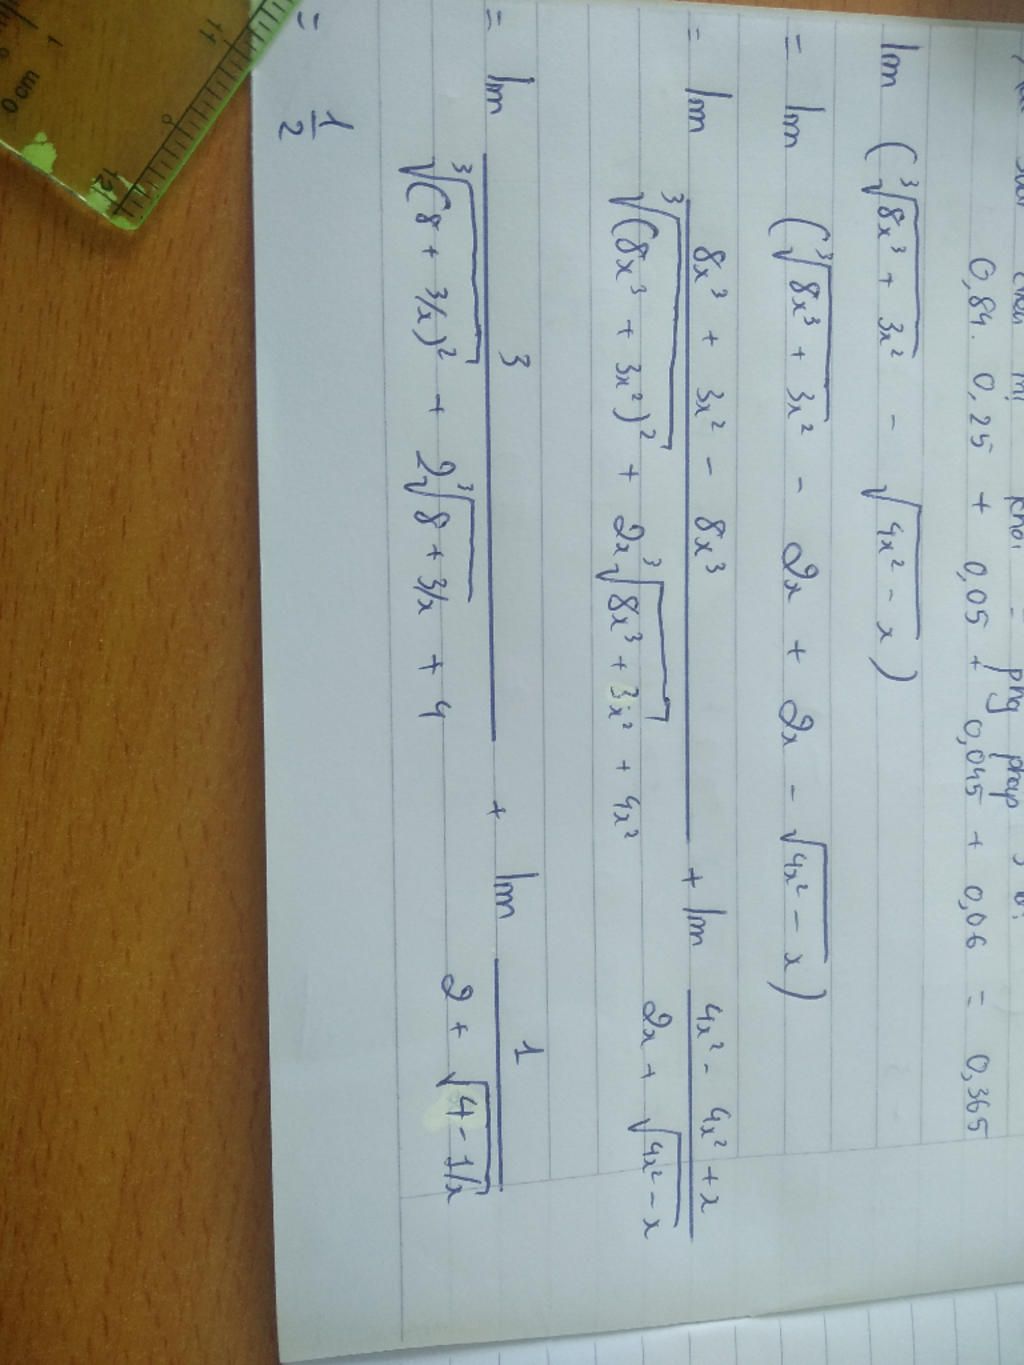 0,84. 0,25 + 0,05 + 0,045 + 0,06 = 0,365
lim (∛(8x³ + 3x²) - √(4x² - x))
= lim (∛(8x³ + 3x²) - 2x + 2x - √(4x² - x))
= lim (8x³ + 3x² - 8x³)/(∛((8x³ + 3x²)²) + 2x∛(8x³ + 3x²) + 4x²) + lim (4x² - 4x² + x)/(2x + √(4x² - x))
= lim 3/(∛((8 + 3/x)²) + 2∛(8 + 3/x) + 4) + lim 1/(2 + √(4 - 1/x))
= 1/2
0 cm 1
11
12